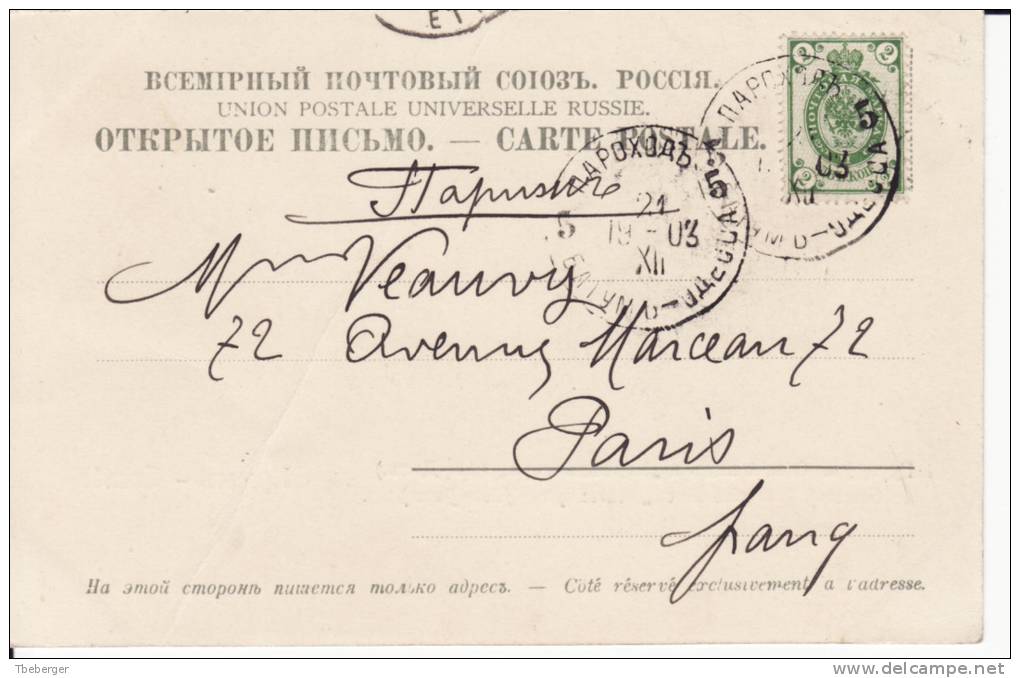 ET
ВСЕМІРНЫЙ ПОЧТОВЫЙ СОЮЗЪ. РОССІЯ.
UNION POSTALE UNIVERSELLE RUSSIE.
ОТКРЫТОЕ ПИСЬМО. — CARTE POSTALE.
2 2
2 2
ПАРОХОДЪ 5
03
XII
ОДЕССА
Парижъ
ПАРОХОДЪ 5
5
21
19 - 03
XII
БАТУМЪ-ОДЕССА
Mme Veauvy
72 Avenue Marceau 72
Paris
На этой сторонѣ пишется только адресъ. — Côté réservé exclusivement a l'adresse.
Tbeberger
delcampe.net